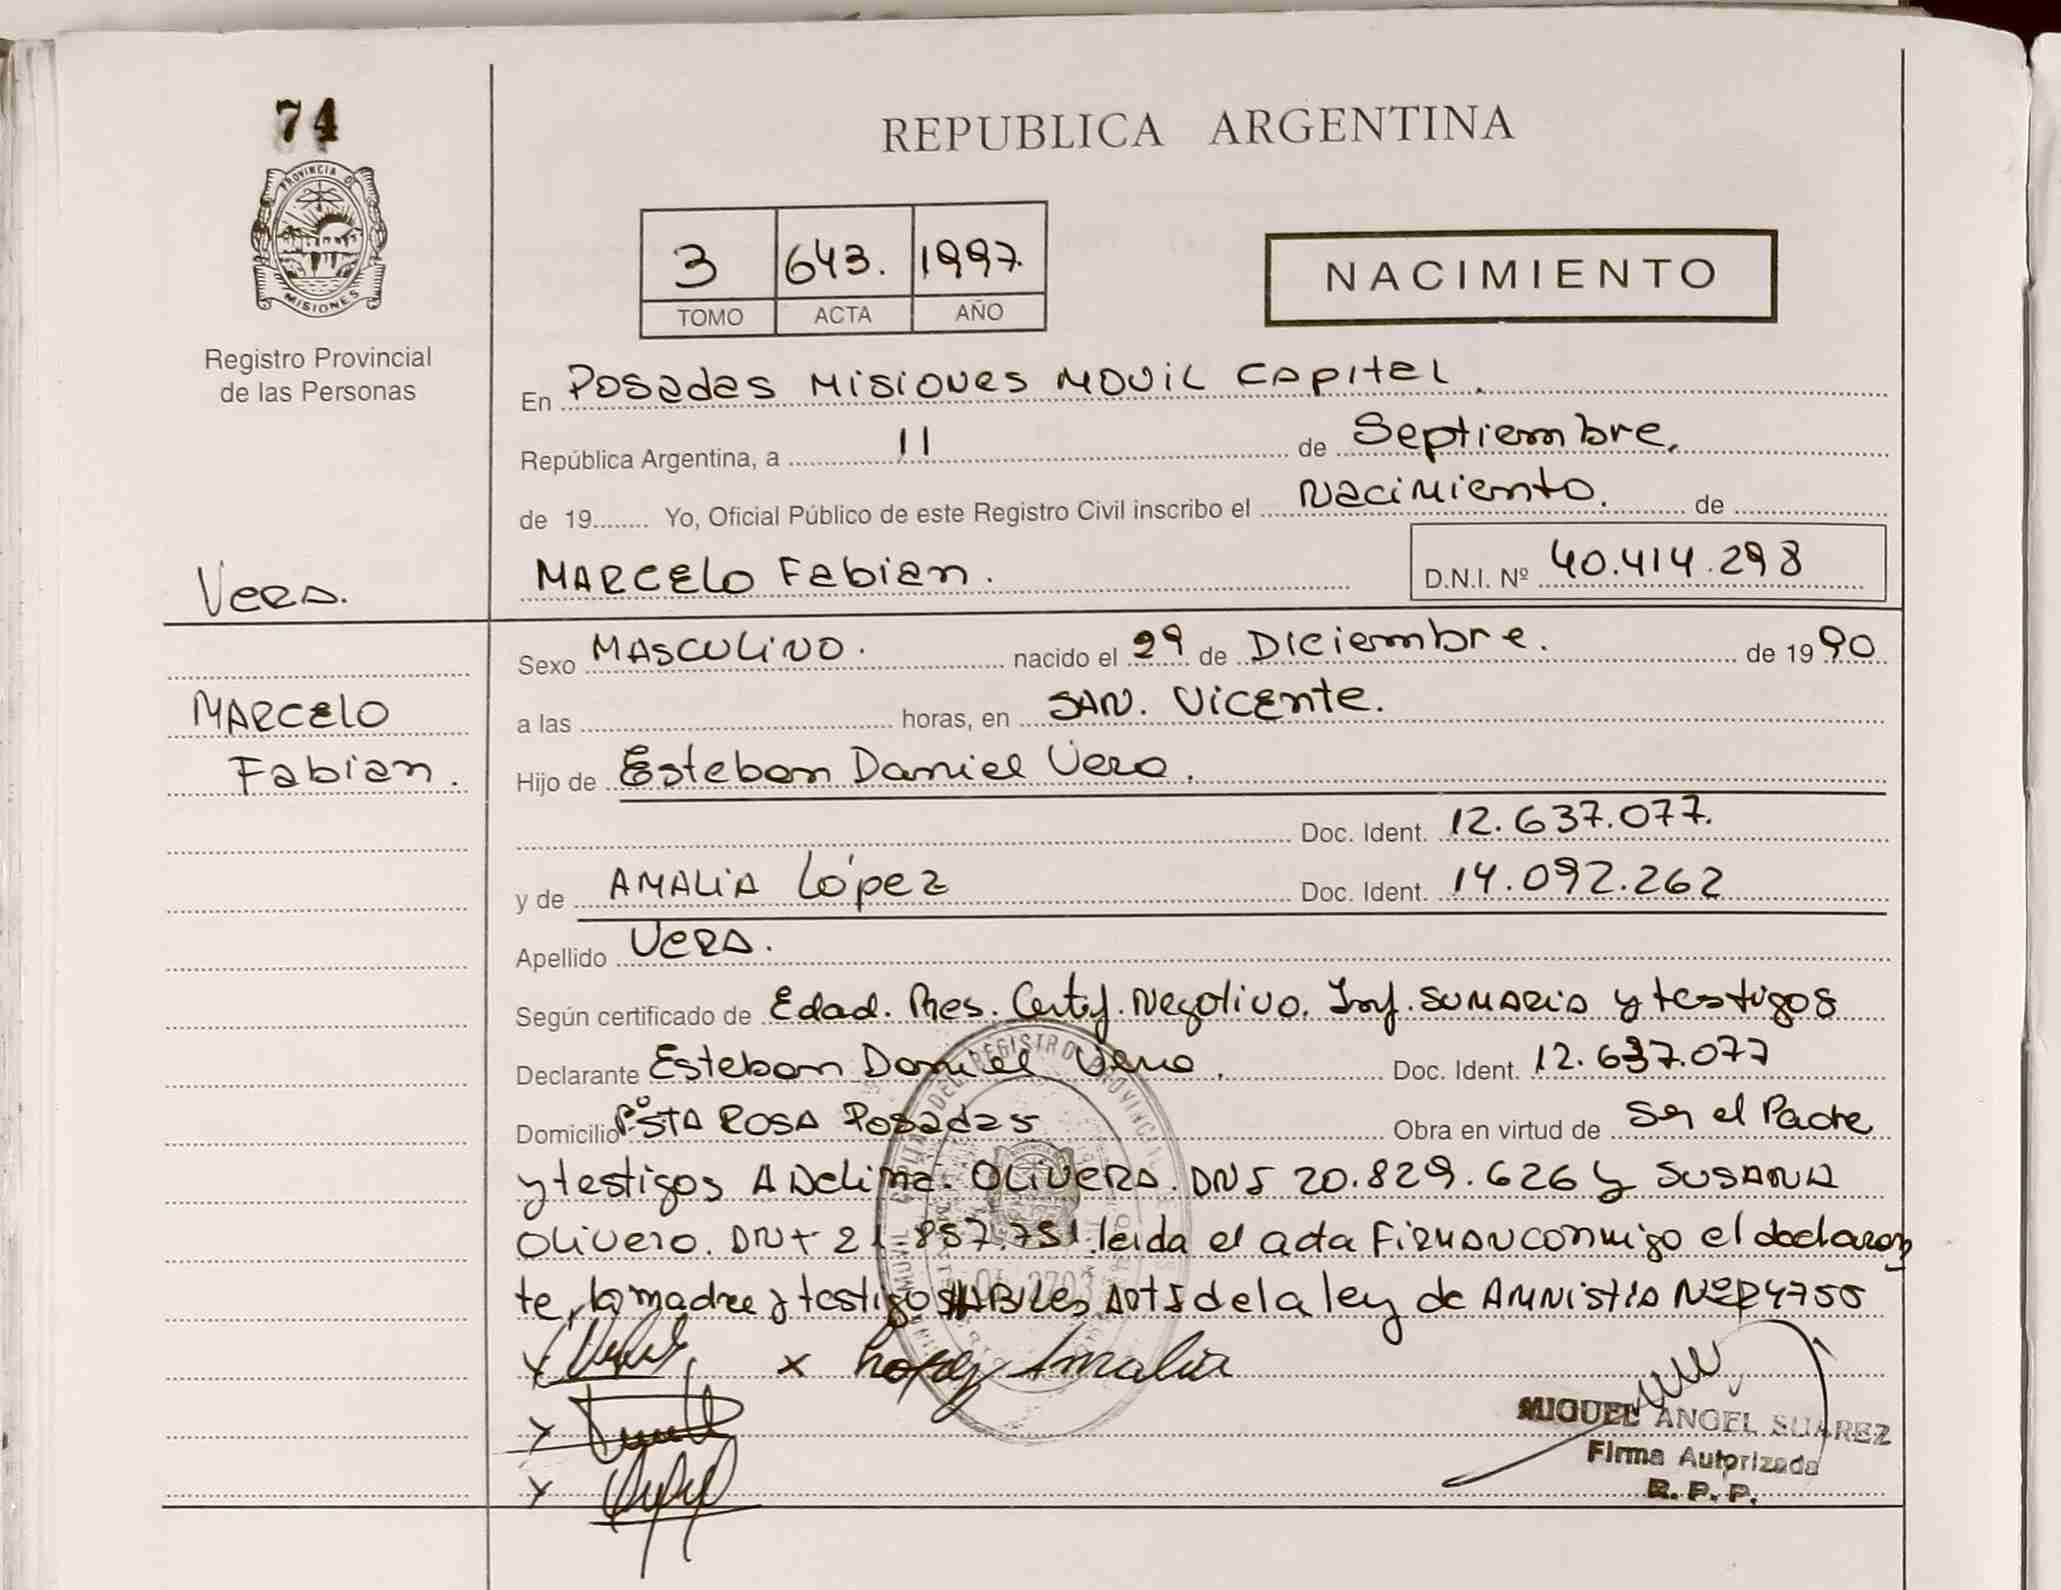 74
PROVINCIA DE
MISIONES
Registro Provincial
de las Personas
REPUBLICA ARGENTINA
3 643. 1997.
TOMO ACTA AÑO
NACIMIENTO
En Posadas Misiones Movil Capital.
República Argentina, a 11 de Septiembre.
de 19........ Yo, Oficial Público de este Registro Civil inscribo el Nacimiento. de
Vera. MARCELO Fabian. D.N.I. Nº 40.414.298
Sexo MASCULINO. nacido el 29 de Diciembre. de 1990
MARCELO a las horas, en SAN. Vicente.
Fabian. Hijo de Esteban Daniel Vera.
Doc. Ident. 12.637.077.
y de AMALIA López Doc. Ident. 14.092.262
Apellido Vera.
Según certificado de Edad. Pres. Certif. Negativo. Inf. SUMARIA y testigos
Declarante Esteban Daniel Vera. Doc. Ident. 12.637.077
Domicilio Bº STA ROSA Posadas Obra en virtud de Ser el Padre
y testigos ADelima. OLIVERA. DNI 20.829.626 y SUSANA
Olivera. DNI 21.857.751. leida el acta FiRMAN conmigo el declaran
te, la madre y testigos HABILES Art 5 de la ley de AMNISTIA Nº 24755
x Lopez Amalia
MIGUEL ANGEL SUAREZ
Firma Autorizada
R. P. P.